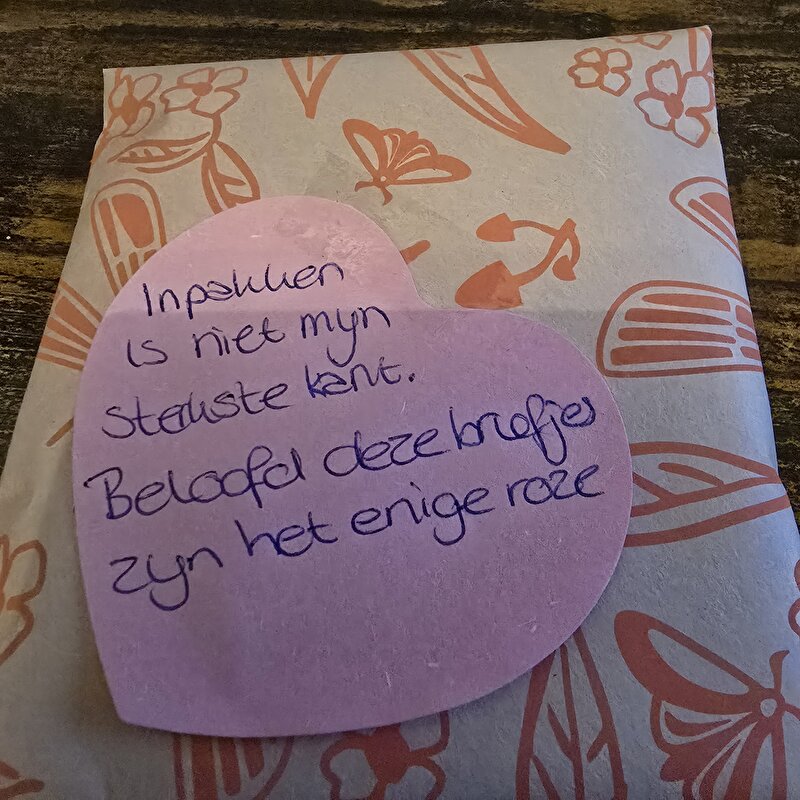 Inpakken
is niet mijn
sterkste kant.
Beloofd deze briefjes
zijn het enige roze